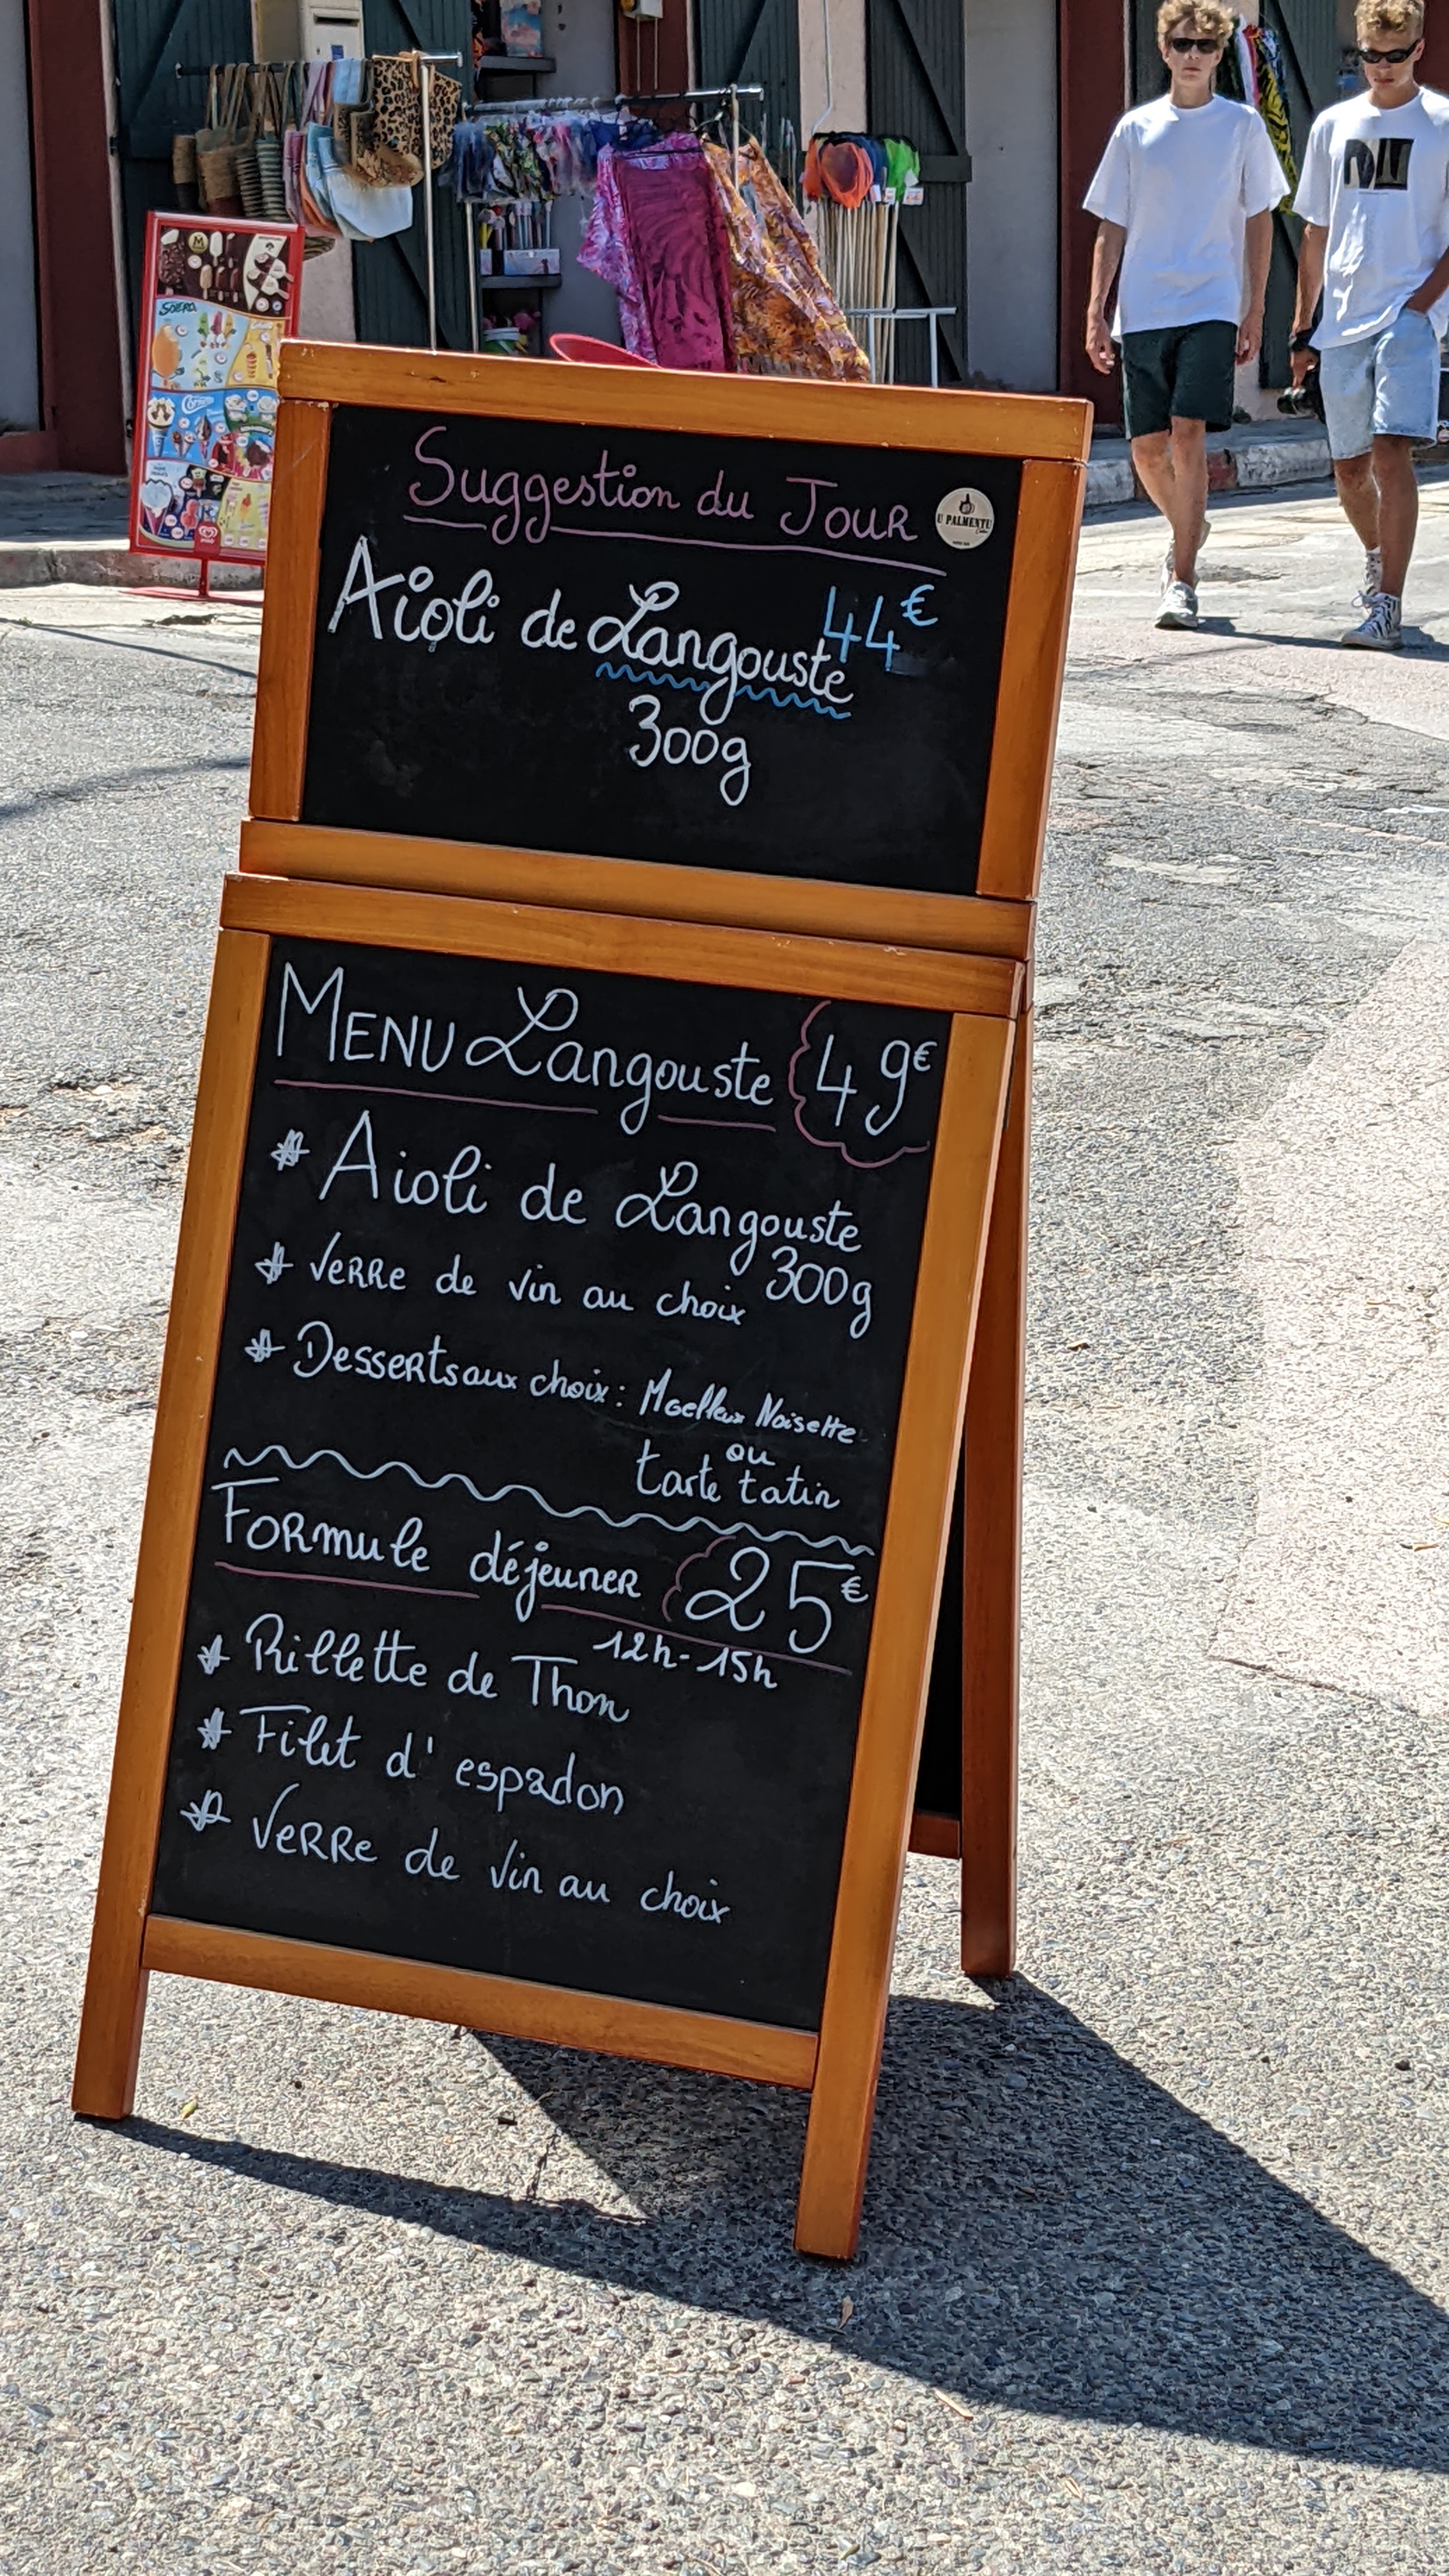 Suggestion du Jour
U PALMENTU
Aioli de Langouste 44€
300g
MENU Langouste 49€
* Aioli de Langouste
300g
* Verre de vin au choix
* Desserts aux choix : Moelleux Noisette
ou
tarte tatin
Formule déjeuner 25€
12h-15h
* Rillette de Thon
* Filet d'espadon
* Verre de vin au choix
SOLERO